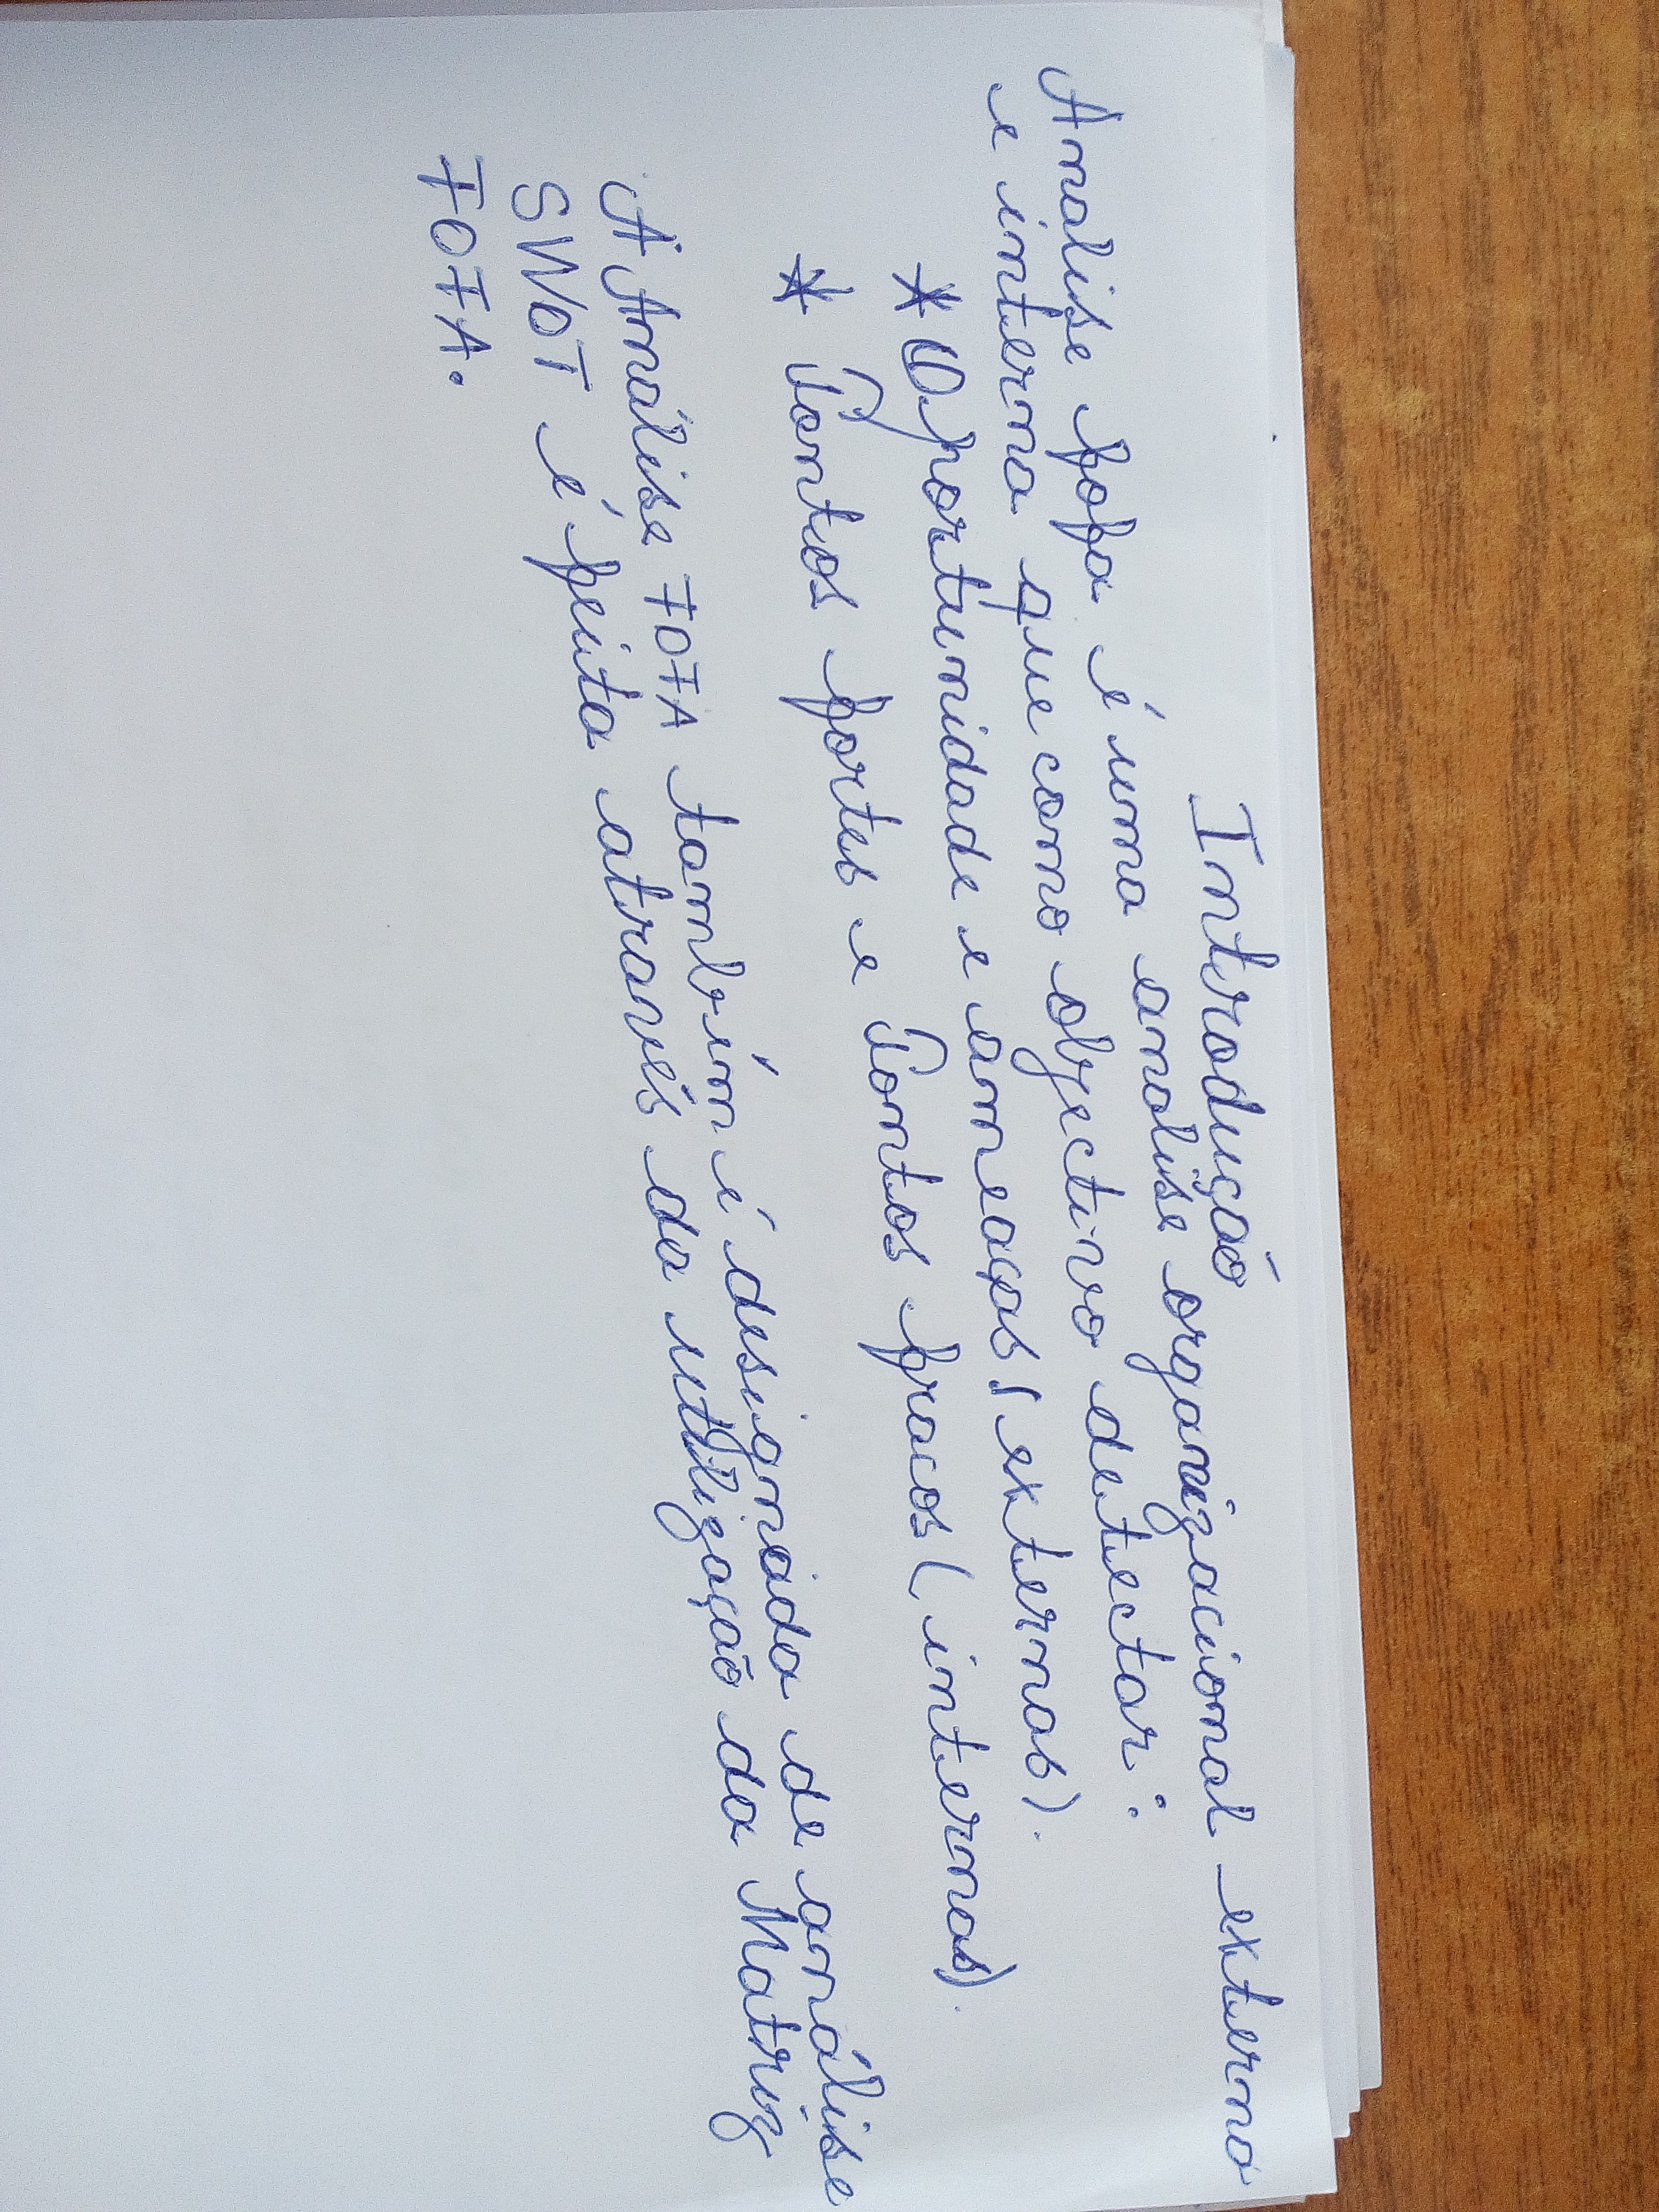 Introdução
Analise fofa é uma analise organizacional externa
e interna que como objectivo detectar:
* Oportunidade e ameaças (externas).
* Pontos fortes e Pontos fracos (internas).
A Análise FOFA também é designada de análise
SWOT é feita através da utilização da Matriz
FOFA.